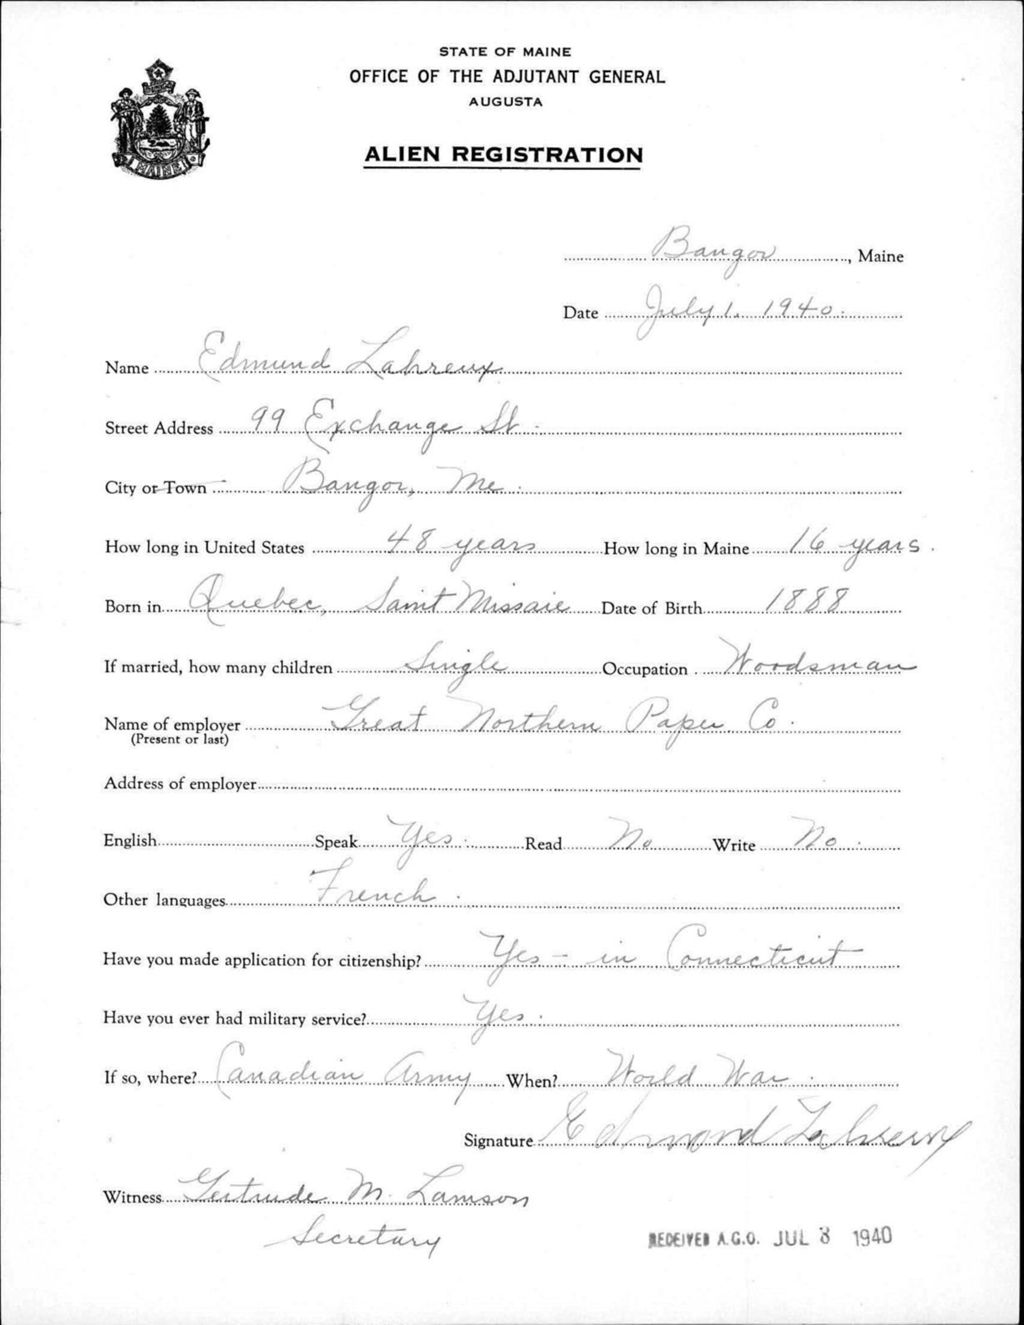 STATE OF MAINE
OFFICE OF THE ADJUTANT GENERAL
AUGUSTA
ALIEN REGISTRATION
MAINE
Bangor, Maine
Date July 1, 1940.
Name Edmund Lahreux
Street Address 99 Exchange St.
City or Town Bangor, Me.
How long in United States 48 years How long in Maine 16 years.
Born in Quebec, Saint Missaie Date of Birth 1888
If married, how many children Single Occupation Woodsman
Name of employer Great Northern Paper Co.
(Present or last)
Address of employer
English Speak Yes. Read No Write No.
Other languages French.
Have you made application for citizenship? Yes - in Connecticut
Have you ever had military service? Yes.
If so, where? Canadian Army When? World War.
Signature Edmond Lahreux
Witness Gertrude M. Lamson
Secretary
RECEIVED A.G.O. JUL 3 1940